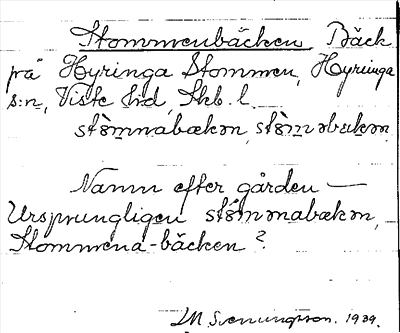 Stommenbäcken Bäck
på Hyringa Stommen, Hyringa
s:n, Viste hd, Skb. l.
stòmnabækən, stòmənbækən
Namn efter gården —
Ursprungligen stòmmənabækən,
Stommena-bäcken?
M. Svenungsson. 1939.